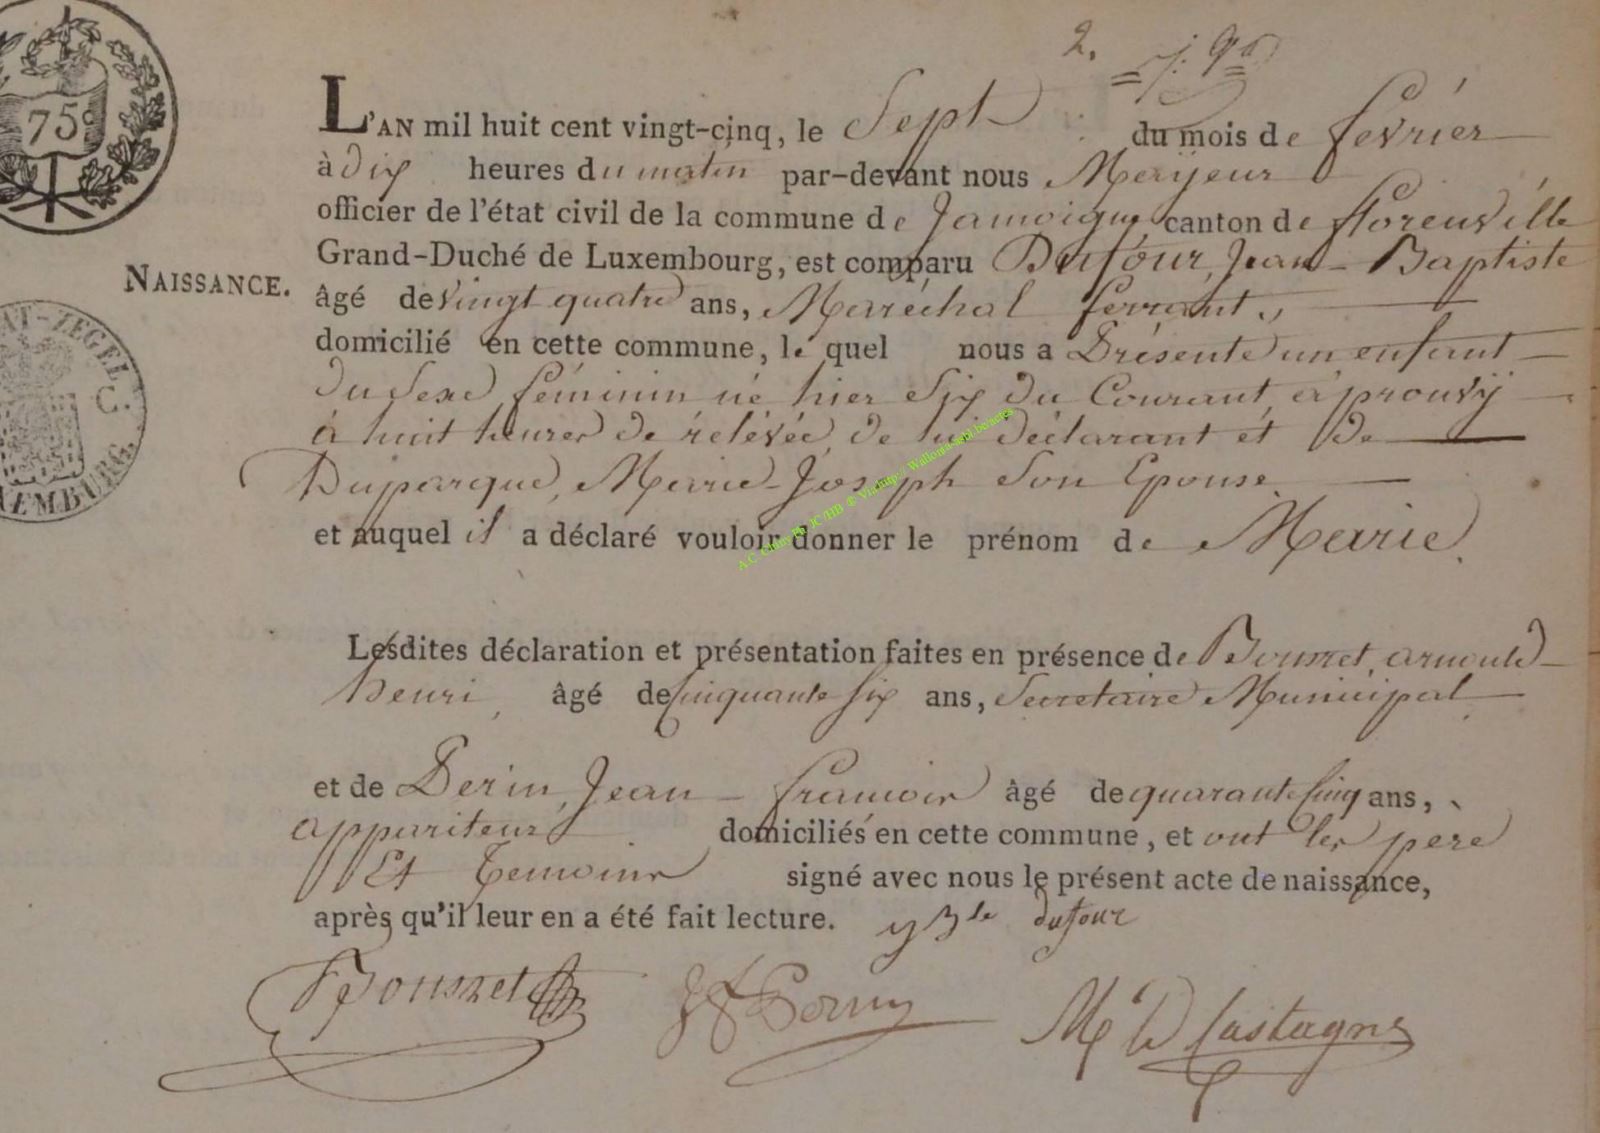 2.
75c
L'AN mil huit cent vingt-cinq, le Sept du mois de fevrier
à dix heures du matin par-devant nous Mayeur
officier de l'état civil de la commune de Jamoigne, canton de florenville
Grand-Duché de Luxembourg, est comparu Dufour, Jean-Baptiste
NAISSANCE.
âgé de vingt quatre ans, Maréchal ferrant,
domicilié en cette commune, le quel nous a Présenté un enfant
du Sexe féminin né hier Six du Courant, à prouvij
à huit heures de rélévée, de lui déclarant et de
Duparque, Marie-Joseph Son Epouse
et auquel il a déclaré vouloir donner le prénom de Marie.
A.C. Chiny Ph JC/HB ® Via http:// Wallonia-asbl.be/actes
Lesdites déclaration et présentation faites en présence de Bousret, arnould
henri, âgé de Cinquante Six ans, Secretaire Municipal
et de Perin, Jean-francois âgé de quarante Cinq ans,
appariteur domiciliés en cette commune, et ont les père
Et Temoins signé avec nous le présent acte de naissance,
après qu'il leur en a été fait lecture. dufour
Bousret
M D Castagne